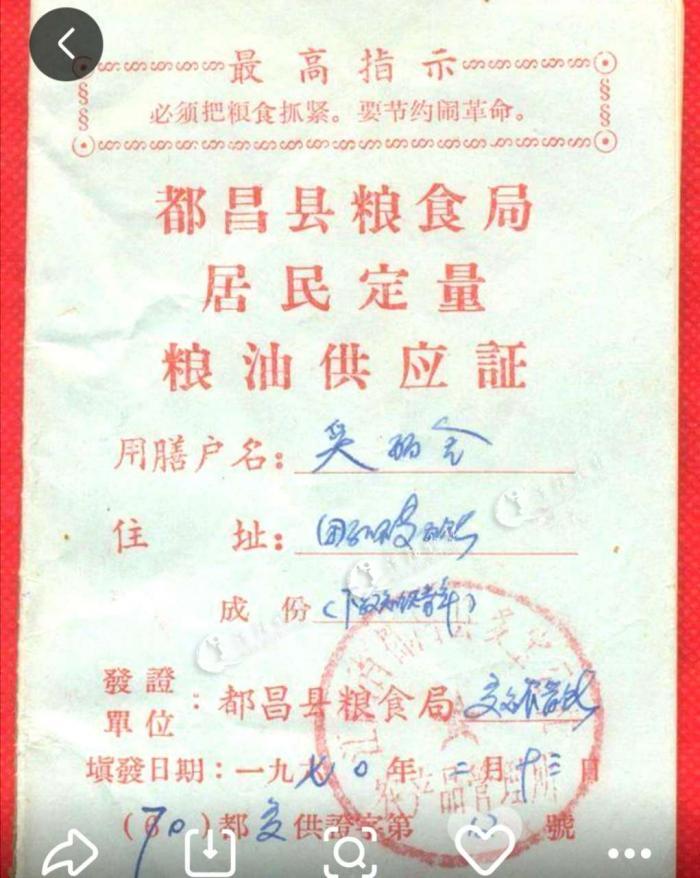 最高指示
必须把粮食抓紧。要节约闹革命。
都昌县粮食局
居民定量
粮油供应証
用膳户名：吴
住址：
成份（下放知识青年）
發證單位：都昌县粮食局
填發日期：一九七〇年二月十三日
（70）都交供證字第 號